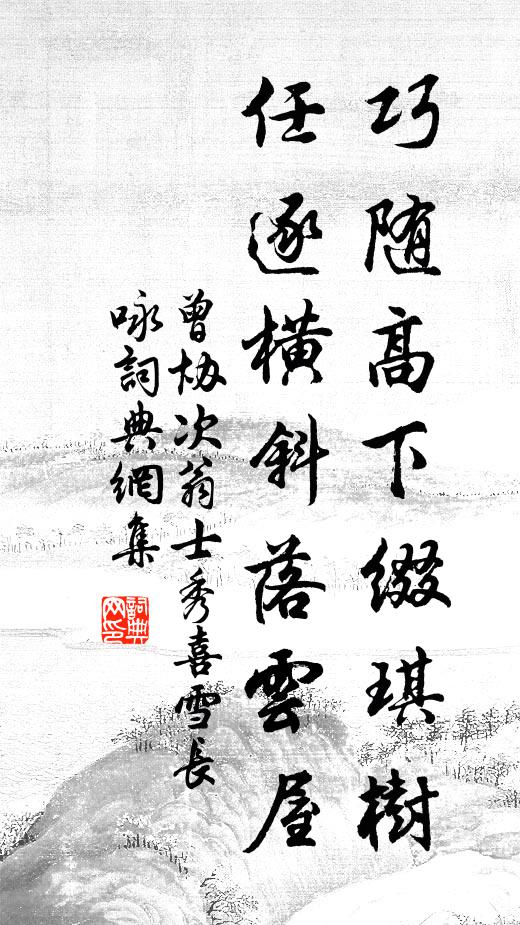 巧随高下缀琪樹
任逐橫斜落雲屋
曾協次翁士秀喜雪長
咏詞典網集
詞典网印